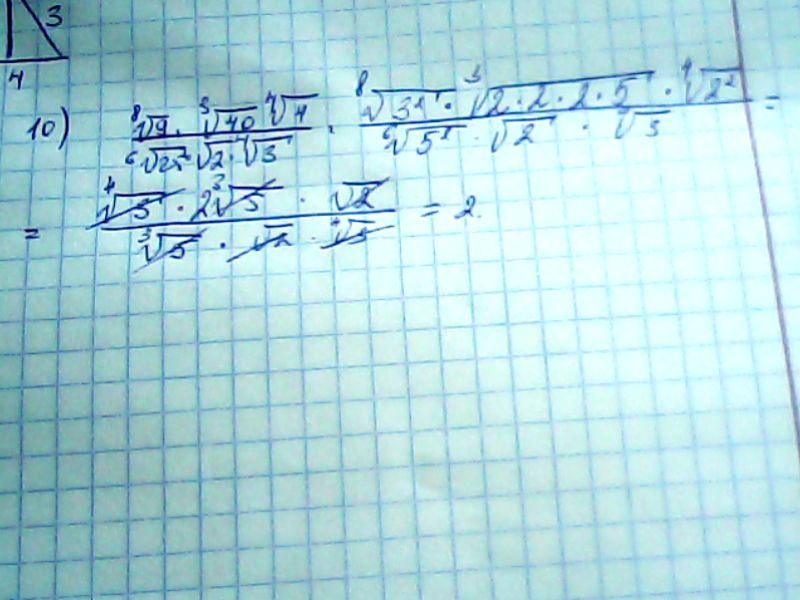 3
4
10) ⁸√9 · ³√40 ⁴√4 / ⁶√25 √2 · ⁴√3 · ⁸√3² · ³√2 · 2 · 2 · 5 · ⁴√2² / ⁶√5² · √2 · ⁴√3 =
= ⁴√3 · 2 ³√5 · √2 / ³√5 · √2 · ⁴√3 = 2.